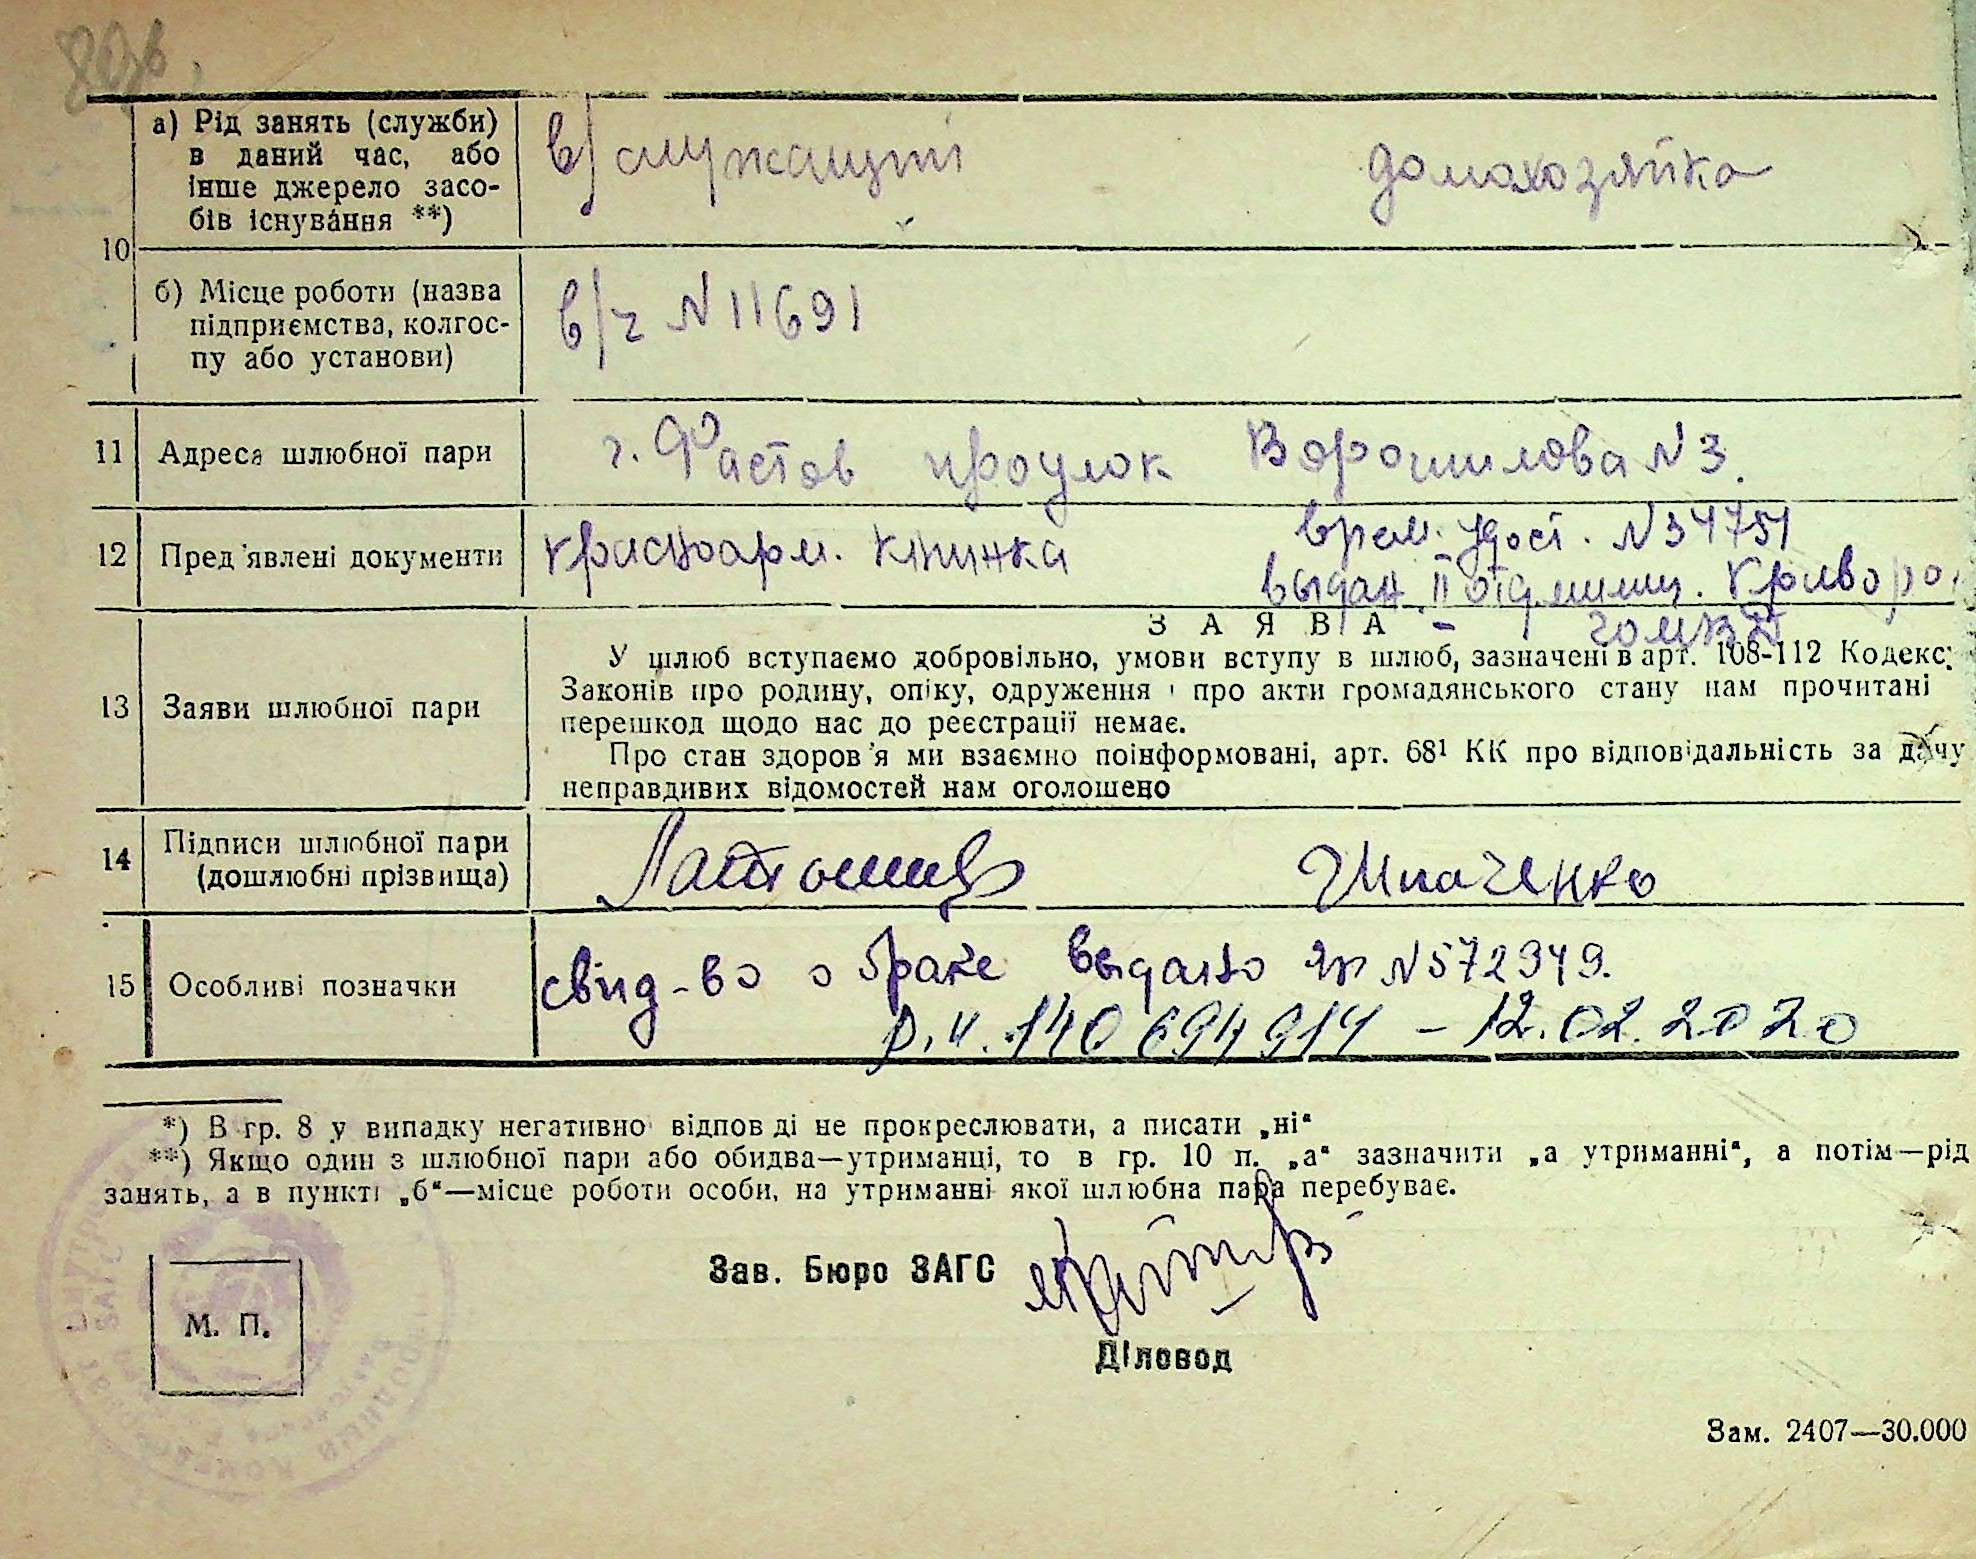 а) Рід занять (служби)
в даний час, або
інше джерело засо-
бів існування **)
в/служащий
домохозяйка
10
б) Місце роботи (назва
підприємства, колгос-
пу або установи)
в/ч N 11691
11 Адреса шлюбної пари
г. Фастов проулок Ворошилова N 3.
12 Пред'явлені документи
красноарм. книжка
врем. удост. N 34751
выдан II отд. милиц. Криворо
13 Заяви шлюбної пари
ЗАЯВА
У шлюб вступаємо добровільно, умови вступу в шлюб, зазначені в арт. 108-112 Кодекс
Законів про родину, опіку, одруження і про акти громадянського стану нам прочитані
перешкод щодо нас до реєстрації немає.
Про стан здоров'я ми взаємно поінформовані, арт. 68¹ КК про відповідальність за дачу
неправдивих відомостей нам оголошено
14 Підписи шлюбної пари
(дошлюбні прізвища)
15 Особливі позначки
свид-во о браке выдано яп N 572949.
р.н. 140 694 914 – 12.02.2020
*) В гр. 8 у випадку негативно відпов ді не прокреслювати, а писати „ні“
**) Якщо один з шлюбної пари або обидва—утриманці, то в гр. 10 п. „а“ зазначити „а утриманні“, а потім—рід
занять, а в пункті „б“—місце роботи особи, на утриманні якої шлюбна пара перебуває.
Зав. Бюро ЗАГС
М. П.
Діловод
Зам. 2407—30.000